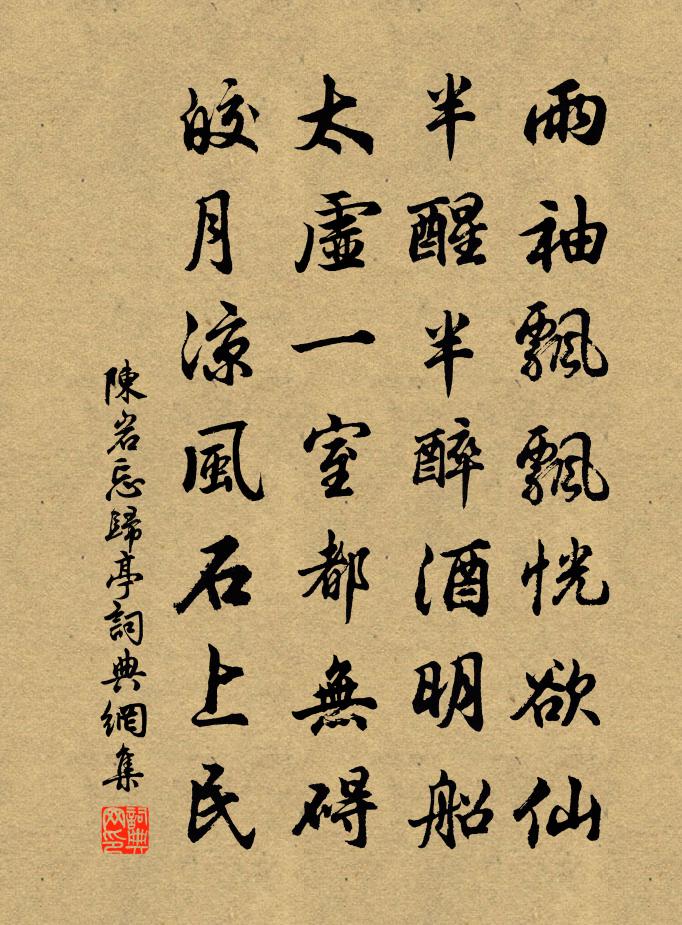 兩袖飄飄恍欲仙
半醒半醉酒明船
太虛一室都無碍
皎月涼風石上民
陳岩忘歸亭詞典網集
詞典網印